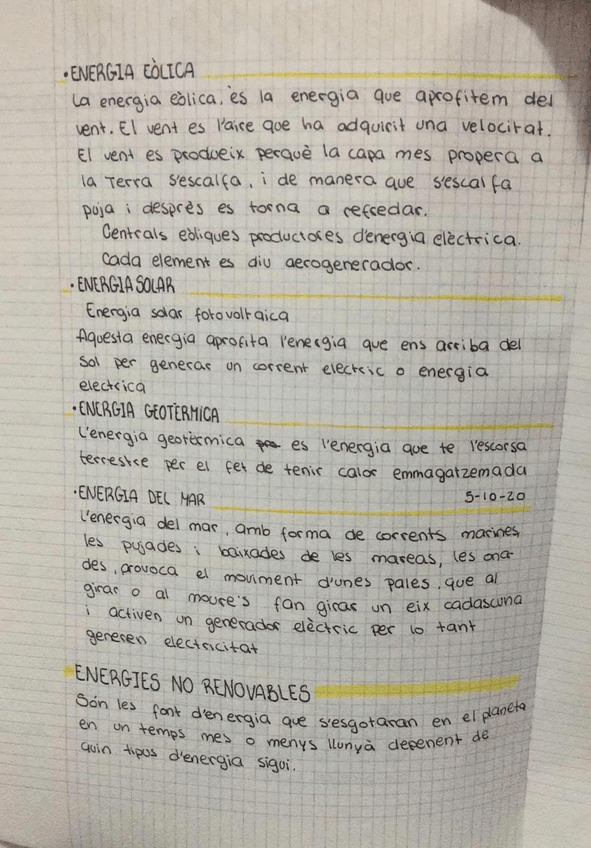 ·ENERGIA EÒLICA
La energia eòlica, és la energia que aprofitem del
vent. El vent es l'aire que ha adquirit una velocitat.
El vent es produeix perquè la capa mes propera a
la Terra s'escalfa, i de manera que s'escalfa
puja i desprès es torna a refredar.
Centrals eòliques productores d'energia elèctrica.
Cada element es diu aerogenerador.
·ENERGIA SOLAR
Energia solar fotovoltaica
Aquesta energia aprofita l'energia que ens arriba del
Sol per generar un corrent electric o energia
electrica
·ENERGIA GEOTÈRMICA
L'energia geotèrmica es l'energia que te l'escorsa
terrestre per el fet de tenir calor emmagatzemada
·ENERGIA DEL MAR 5-10-20
L'energia del mar, amb forma de corrents marines,
les pujades i baixades de les mareas, les ona-
des, provoca el moviment d'unes pales, que al
girar o al moure's fan girar un eix cadascuna
i activen un generador elèctric per lo tant
generen electricitat
ENERGIES NO RENOVABLES
Són les font d'energia que s'esgotaran en el planeta
en un temps mes o menys llunyà depenent de
quin tipus d'energia sigui.